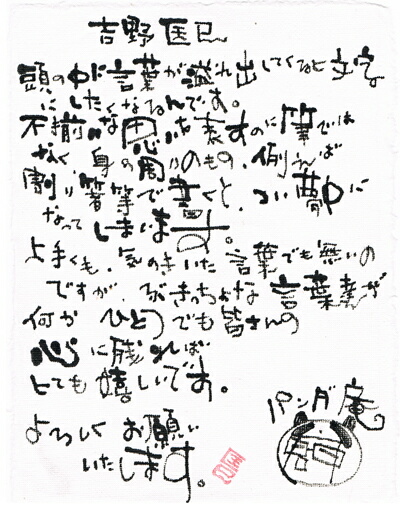 吉野匡巳
頭の中に言葉が溢れ出してくると文字
にしたくなるんです。
不揃いな思いを表すのに筆では
なく、身の周りのもの、例えば
割り箸等で書くと、つい夢中に
なってしまいます。
上手くも、気のきいた言葉でも無いの
ですが、ぶきっちょな言葉達が
何か ひとつでも皆さんの
心に残れば
とても嬉しいです。
よろしくお願い
いたします。
パンダ庵